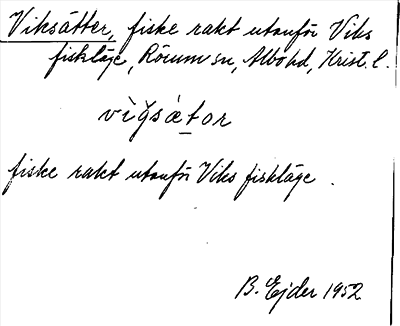 Viksätter, fiske rakt utanför Viks
fiskläge, Rörum sn, Albo hd, Krist. l.
vìgsætor
fiske rakt utanför Viks fiskläge.
B. Ejder 1952